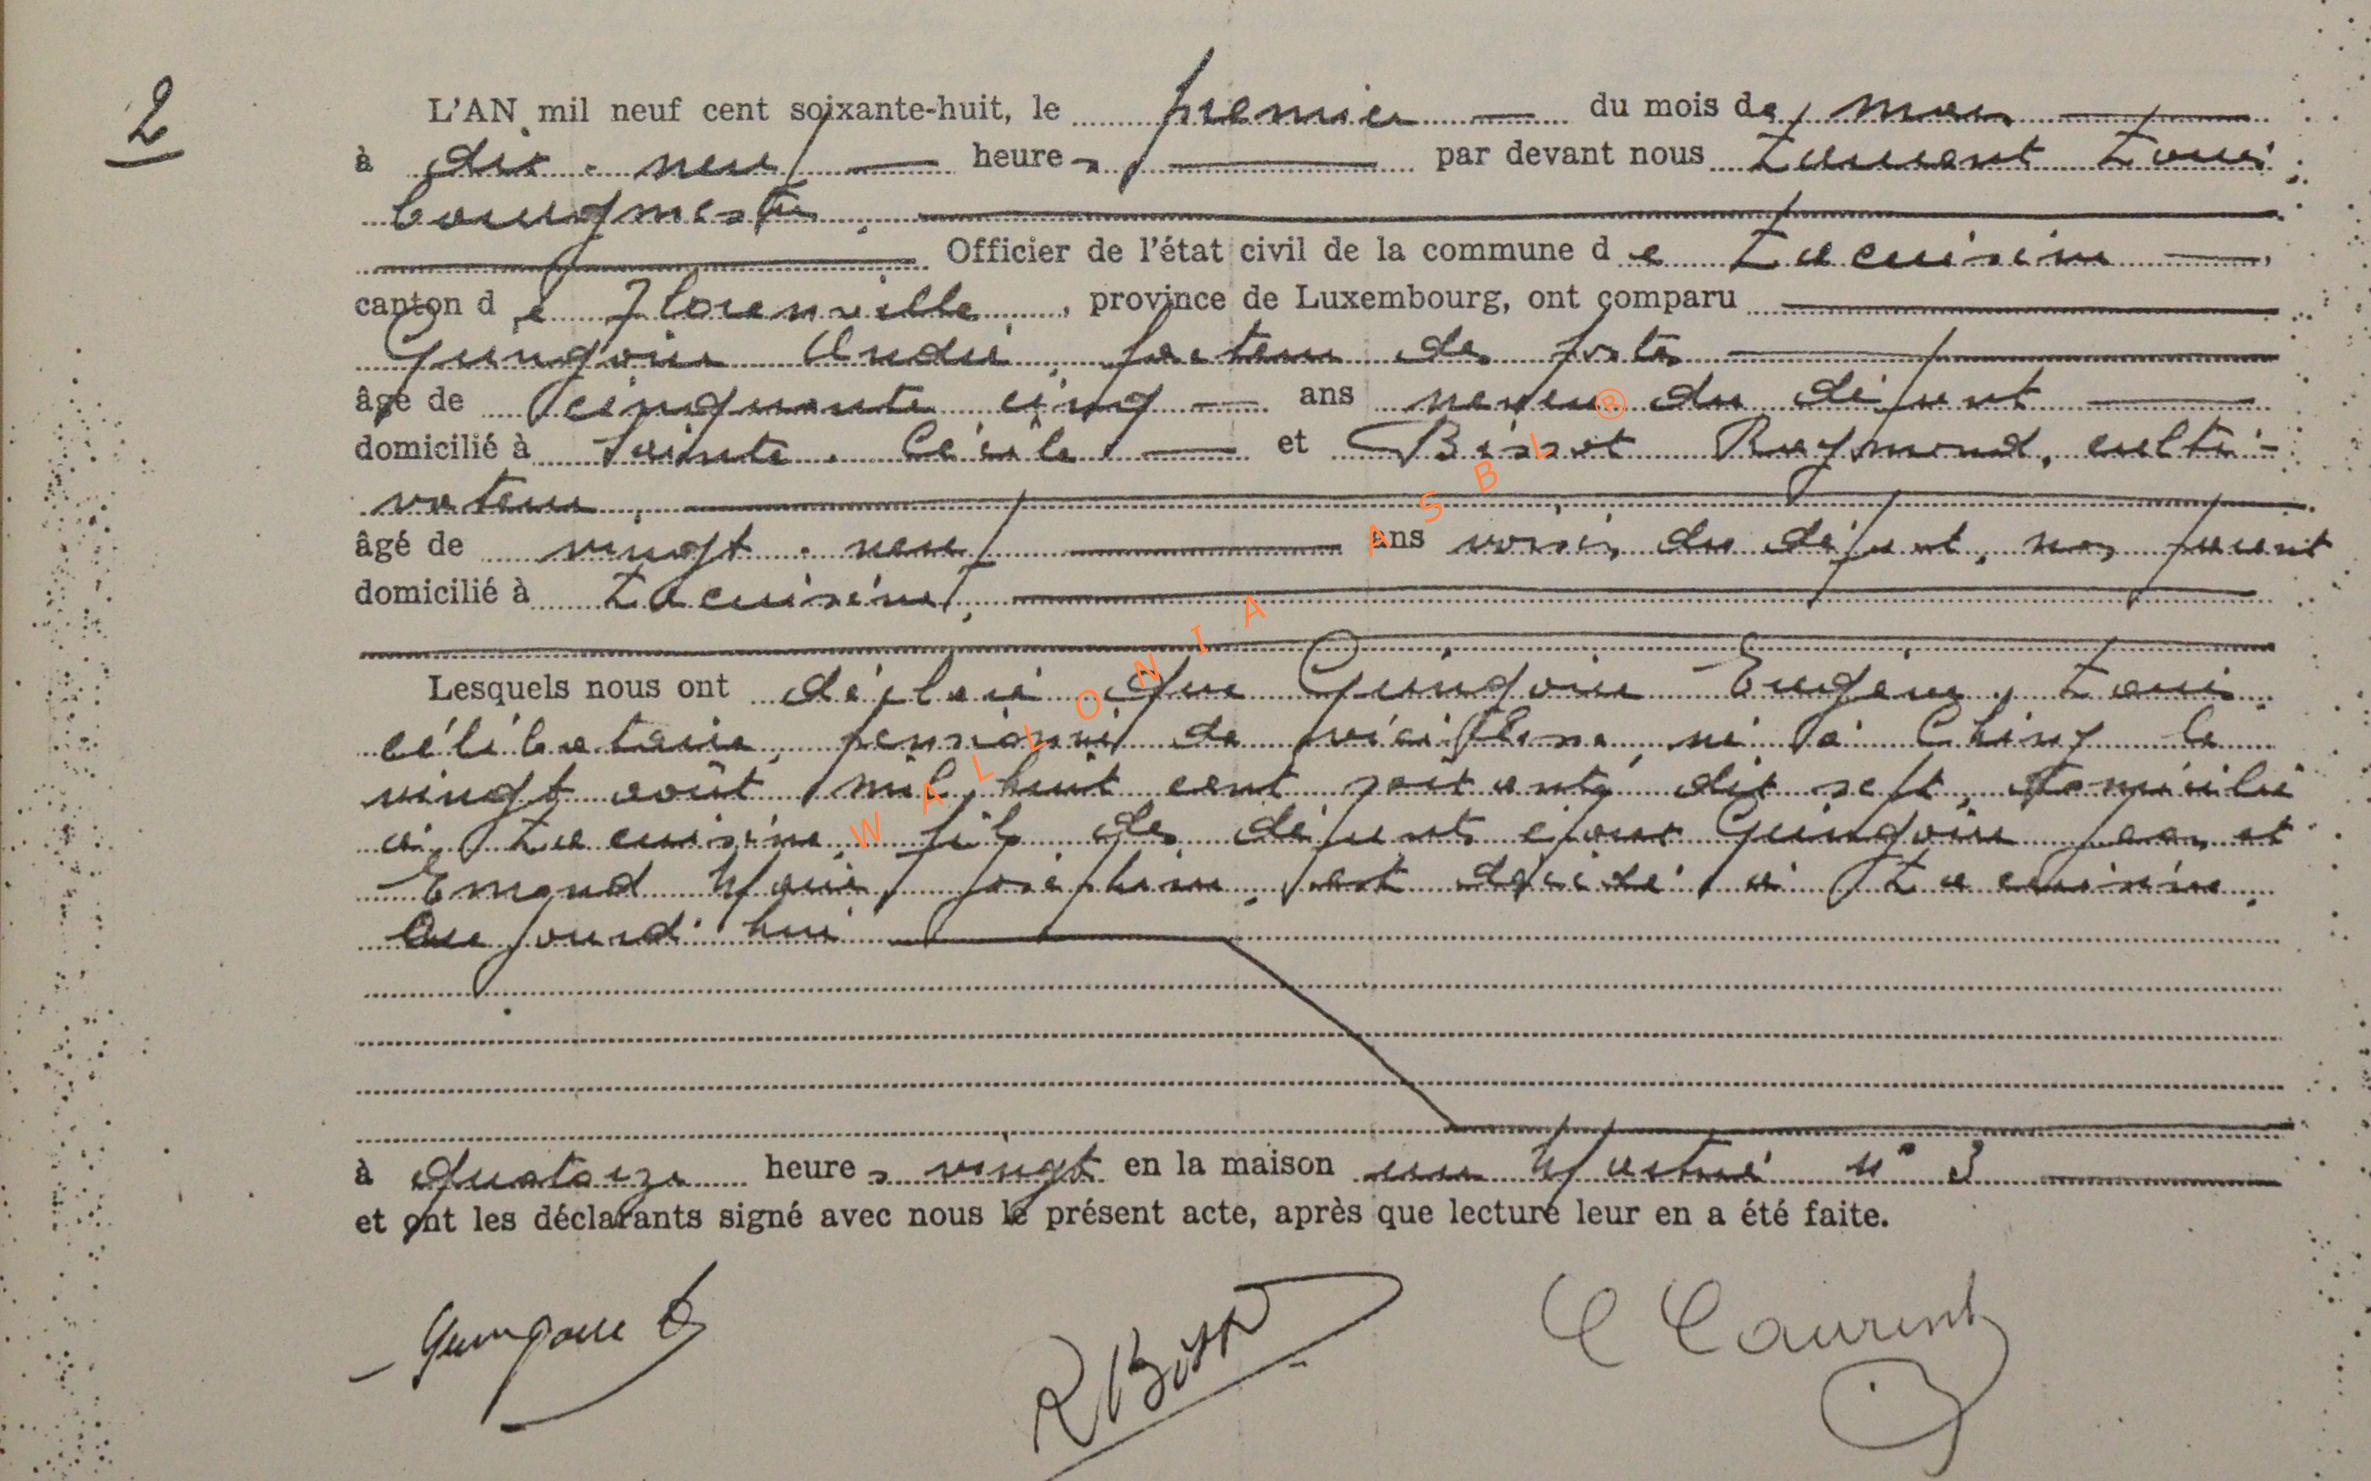 2
L'AN mil neuf cent soixante-huit, le premier du mois de mars
à dix-neuf heures, par devant nous Laurent Louis
bourgmestre,
Officier de l'état civil de la commune de Lacuisine,
canton de Florenville, province de Luxembourg, ont comparu
Guingoire André, facteur des postes
âgé de cinquante cinq ans neveu du défunt
domicilié à Sainte-Cécile et Bissot Raymond, culti-
vateur,
âgé de vingt-neuf ans voisin du défunt, non parent
domicilié à Lacuisine,
Lesquels nous ont déclaré que Guingoire Eugène, Louis
célibataire, pensionné de né à Chiny le
vingt août mil huit cent soixante dix sept, domicilié
à Lacuisine, fils des défunts époux Guingoire et
Emond Marie Joséphine, est décédé à Lacuisine,
Aujourd'hui
à quatorze heures vingt en la maison rue n° 3
et ont les déclarants signé avec nous le présent acte, après que lecture leur en a été faite.
Guingoire
R Bissot
L Laurent
WALLONIA ASBL ®